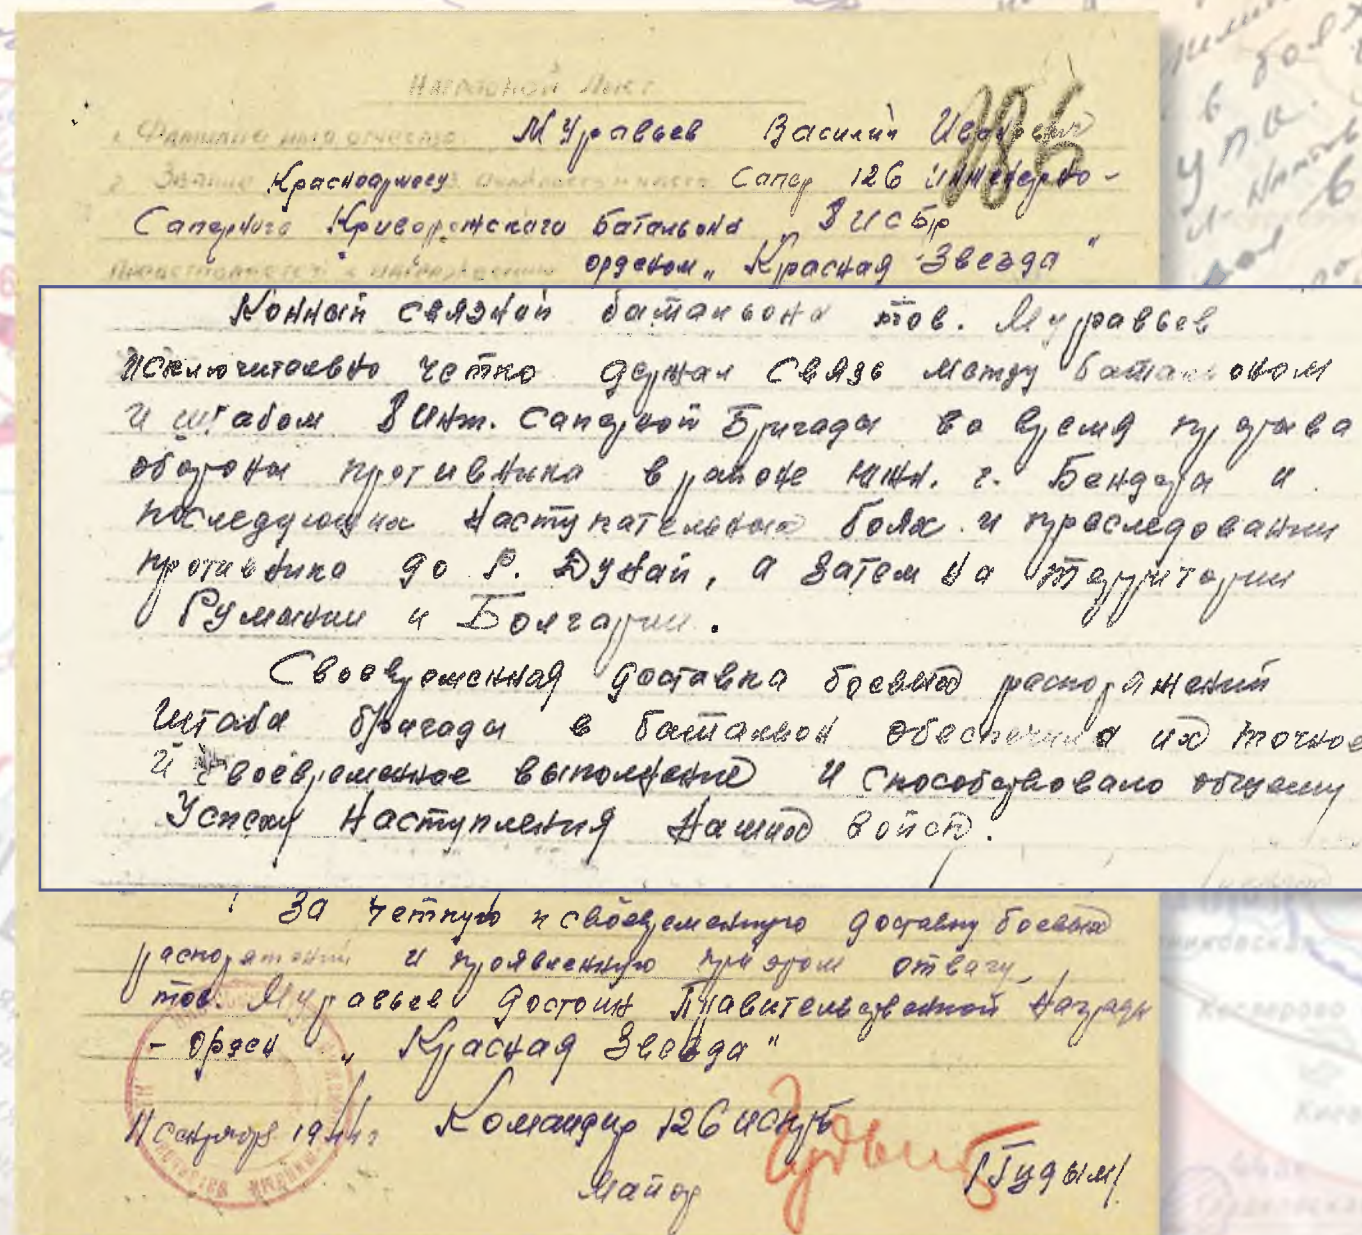 Наградной Лист
1. Фамилия имя отчество Муравьев Василий Иванович
2. Звание Красноармеец 3. должность и часть Сапер 126 Инженерно-
Саперного Криворожского Батальона, 8 ИСБр
Представляется к награждению орденом „Красная Звезда"
Конный связной батальона тов. Муравьев
исключительно четко держал связь между Батальоном
и штабом 8 Инж. Саперной Бригады во время прорыва
обороны противника в районе южн. г. Бендеры и
последующих наступательных боях и преследовании
противника до р. Дунай, а затем на территории
Румынии и Болгарии.
Своевременная доставка боевых распоряжений
Штаба бригады в батальон обеспечила их точное
и своевременное выполнение и способствовало общему
Успеху Наступления Наших войск.
За четкую и своевременную доставку боевых
распоряжений и проявленную при этом отвагу,
тов. Муравьев достоин Правительственной Награды
- орден „Красная Звезда"
11 сентября 1944 г Командир 126 искрб
Майор /Гудым/